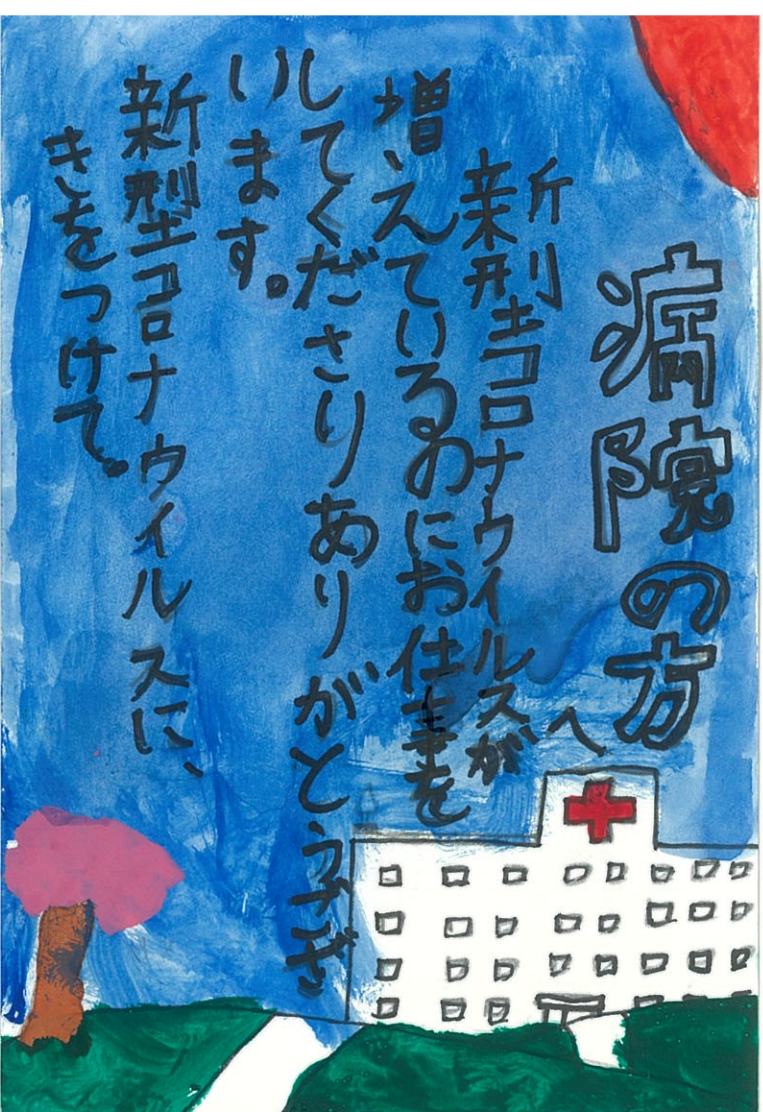 病院の方へ
新型コロナウイルスが
増えているのにお仕事を
してくださりありがとうござ
います。
新型コロナウイルスに、
きをつけて。